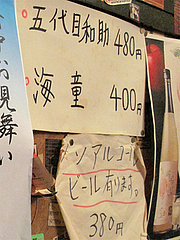 五代目和助 480円
海童 400円
ノンアルコール
ビール有ります。
380円
お見舞い